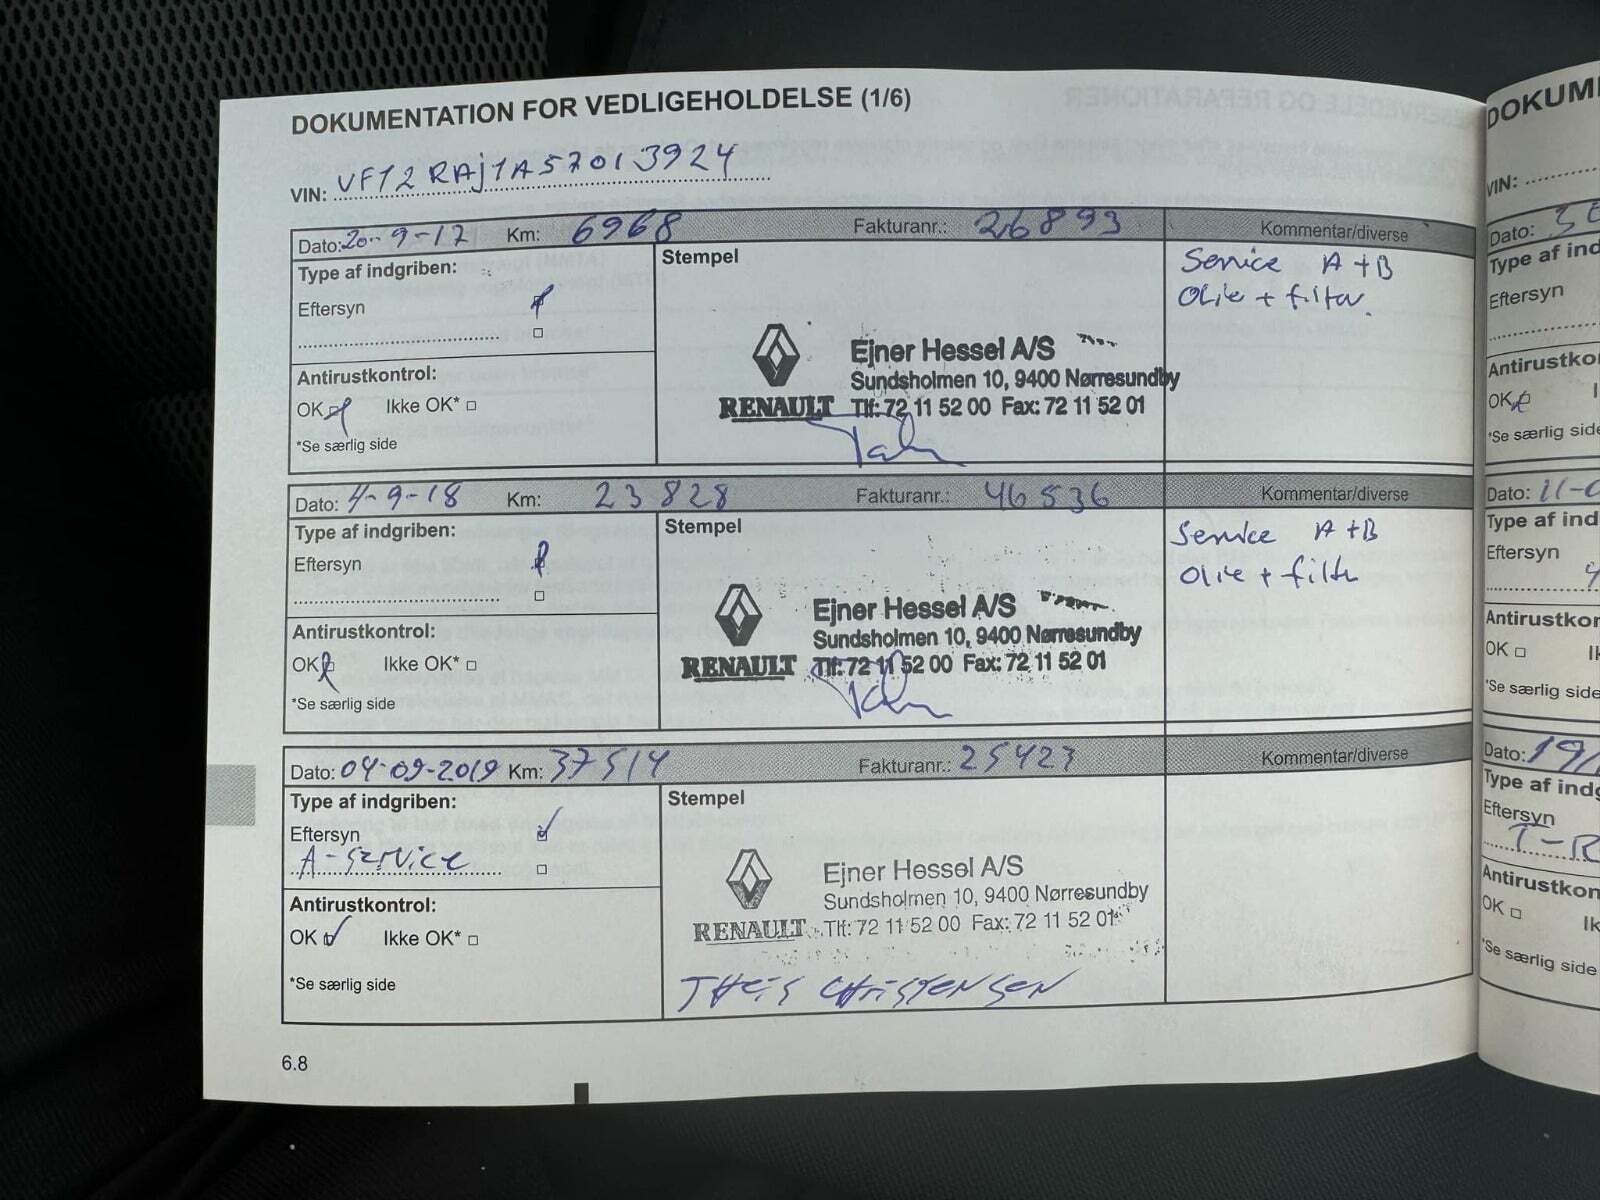 DOKUMENTATION FOR VEDLIGEHOLDELSE (1/6)
VIN: VF12RAJ1A57013924
Dato: 20-9-17 Km: 6968 Fakturanr.: 26893 Kommentar/diverse
Type af indgriben:
Eftersyn
Stempel
Service A+B
Olie + filter.
Antirustkontrol:
OK Ikke OK*
*Se særlig side
Ejner Hessel A/S
Sundsholmen 10, 9400 Nørresundby
RENAULT Tlf: 72 11 52 00 Fax: 72 11 52 01
Dato: 4-9-18 Km: 23828 Fakturanr.: 46536 Kommentar/diverse
Type af indgriben:
Eftersyn
Stempel
Service A+B
Olie + filter
Antirustkontrol:
OK Ikke OK*
*Se særlig side
Ejner Hessel A/S
Sundsholmen 10, 9400 Nørresundby
RENAULT Tlf: 72 11 52 00 Fax: 72 11 52 01
Dato: 04-09-2019 Km: 37514 Fakturanr.: 25423 Kommentar/diverse
Type af indgriben:
Eftersyn
A-service
Stempel
Antirustkontrol:
OK Ikke OK*
*Se særlig side
Ejner Hessel A/S
Sundsholmen 10, 9400 Nørresundby
RENAULT Tlf: 72 11 52 00 Fax: 72 11 52 01
Theis Christensen
6.8
DOKUM
VIN:
Dato:
Type af ind
Eftersyn
Antirustko
OK
*Se særlig side
Dato: 11-0
Type af ind
Eftersyn
Antirustkor
OK
*Se særlig side
Dato: 19/
Type af indg
Eftersyn
T-R
Antirustkon
OK Ik
*Se særlig side